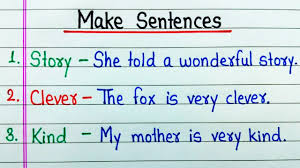 Make Sentences
1. Story – She told a wonderful story.
2. Clever – The fox is very clever.
3. Kind – My mother is very kind.